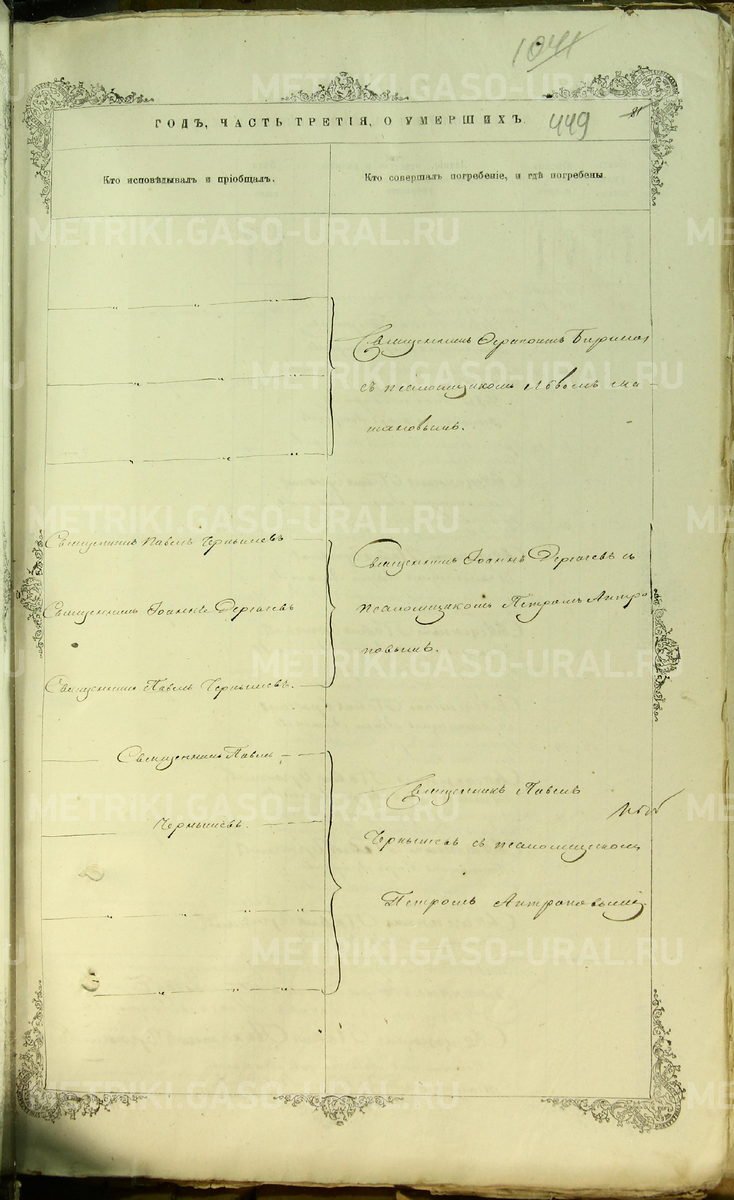 1041
ГОДЪ, ЧАСТЬ ТРЕТІЯ, О УМЕРШИХЪ.
449
81
Кто исповѣдывалъ и пріобщалъ.
Кто совершалъ погребеніе, и гдѣ погребены.
Священникъ
съ псаломщикомъ Львомъ Ма-
маковымъ.
Священникъ Павелъ Чернышевъ
Священникъ Іоаннъ Дергачевъ
Священникъ Павелъ Чернышевъ.
Священникъ Іоаннъ Дергачевъ съ
псаломщикомъ Петромъ Антро
повымъ.
Священникъ Павелъ
Чернышевъ.
Священникъ Павелъ
Чернышевъ съ псаломщикомъ
Петромъ Антроповымъ
METRIKI.GASO-URAL.RU